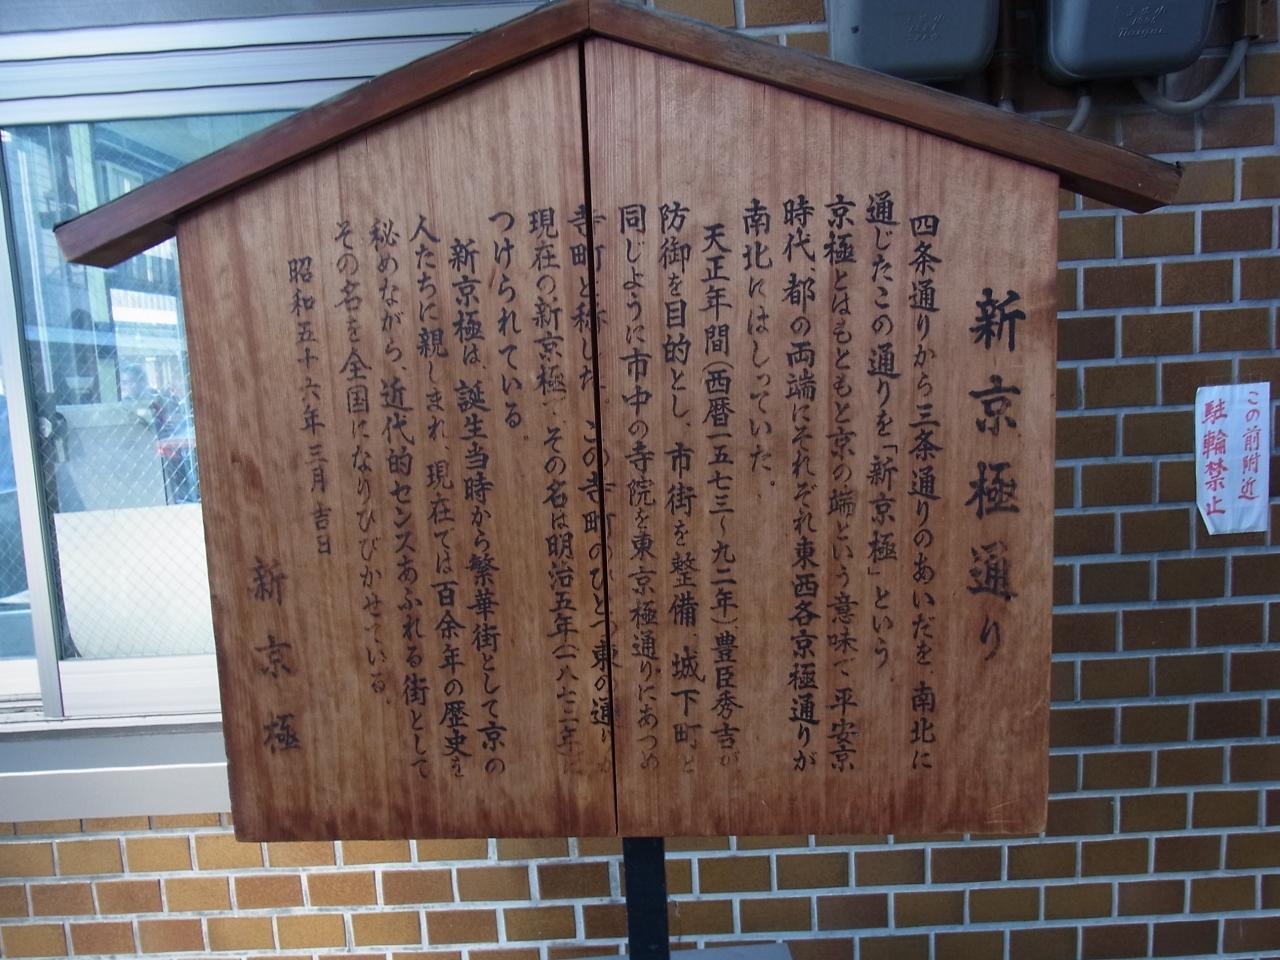 新京極通り
四条通りから三条通りのあいだを、南北に
通じたこの通りを「新京極」という
京極とはもともと京の端という意味で平安京
時代、都の両端にそれぞれ東西各京極通りが
南北にはしっていた。
天正年間(西暦一五七三〜九二年)豊臣秀吉が
防御を目的とし、市街を整備、城下町と
同じように市中の寺院を東京極通りにあつめ
寺町と称した。この寺町のひとつ東の通りが
現在の新京極で、その名は明治五年(一八七二年)に
つけられている
新京極は、誕生当時から繁華街として京の
人たちに親しまれ、現在では百余年の歴史を
秘めながら、近代的センスあふれる街として
その名を全国になりひびかせている。
昭和五十六年三月吉日
新京極
この前附近
駐輪禁止